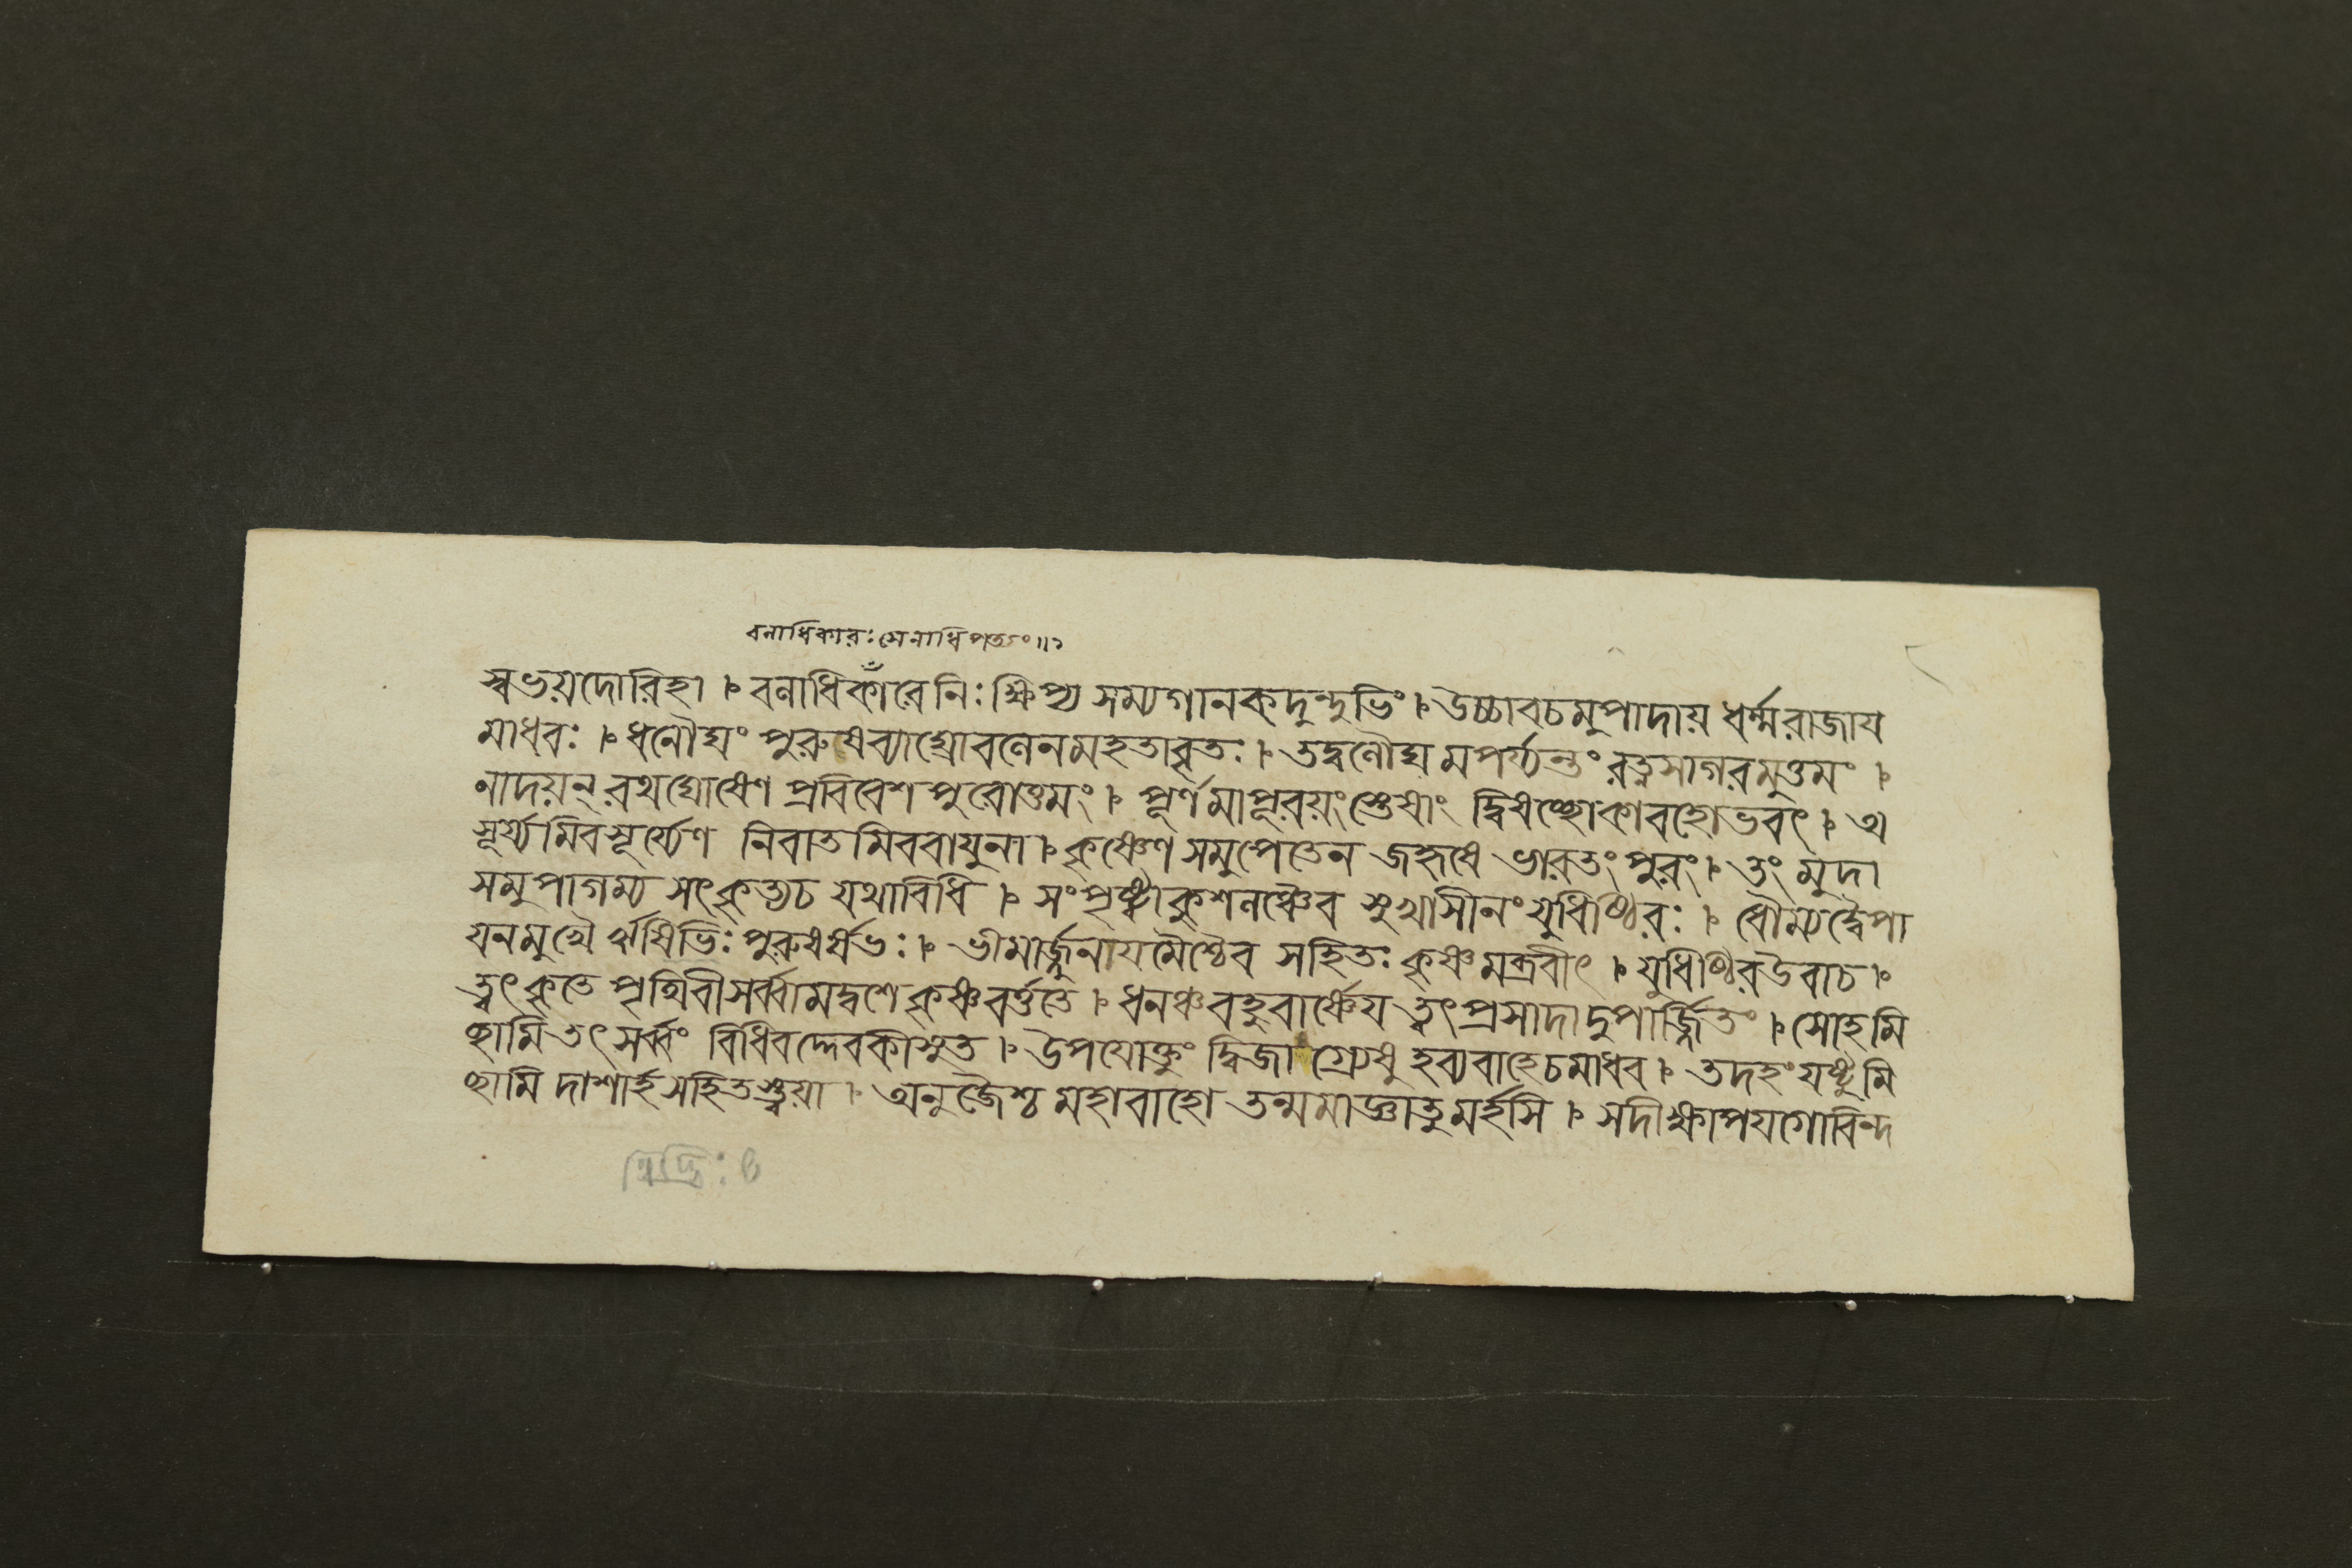 বনাধিকারঃ সেনাধিপত্যং॥১
স্বভয়দোরিহা । বনাধিকাঁরেনিঃক্ষিপ্য সম্যগানকদুন্দুভিং । উচ্চাবচমুপাদায় ধর্ম্মরাজায
মাধবঃ । ধনৌঘং পুরুষব্যাঘ্রোবণেনমহতাবৃতঃ । তদ্বণৌঘমপর্য্যন্তং রত্নসাগরমুত্তমং ।
নাদয়ন্ রথঘোষেণ প্রবিবেশ পুরোত্তমং । পূর্ণমাপূরয়ংস্তেষাং দ্বিষচ্ছোকাবহোভবৎ । অ
সূর্য্যমিবসূর্য্যেণ নিবাতমিববাযুনা । কৃষ্ণেণ সমুপেতেন জহৃষে ভারতং পুরং । তং মুদা
সমুপাগম্য সৎকৃত্যচ যথাবিধি । সংপৃষ্ট্বাকুশনঞ্চৈব সুখাসীনং যুধিষ্ঠিরঃ । ধৌম্যদ্বৈপা
যনমুখৈর্ঋষিভিঃ পুরুষর্ষভঃ । ভীমার্জ্জুনাযমৈশ্চৈব সহিতঃ কৃষ্ণমব্রবীৎ । যুধিষ্ঠিরউবাচ ।
ত্বৎকৃতে পৃথিবীসর্ব্বামদ্বশে কৃষ্ণবর্ত্ততে । ধনঞ্চবহুবার্ষ্ণেয ত্বৎপ্রসাদাদুপার্জ্জিতং । সোহমি
চ্ছামি তৎ সর্ব্বং বিধিবদ্দেবকীসুত । উপযোক্তুং দ্বিজাগ্র্যেষু হব্যবাহেচমাধব । তদহং যষ্টুমি
চ্ছামি দাশার্হ সহিতস্ত্বয়া । অনুজৈশ্চ মহাবাহো তন্মমাজ্ঞাতুমর্হসি । সদীক্ষাপযগোবিন্দ